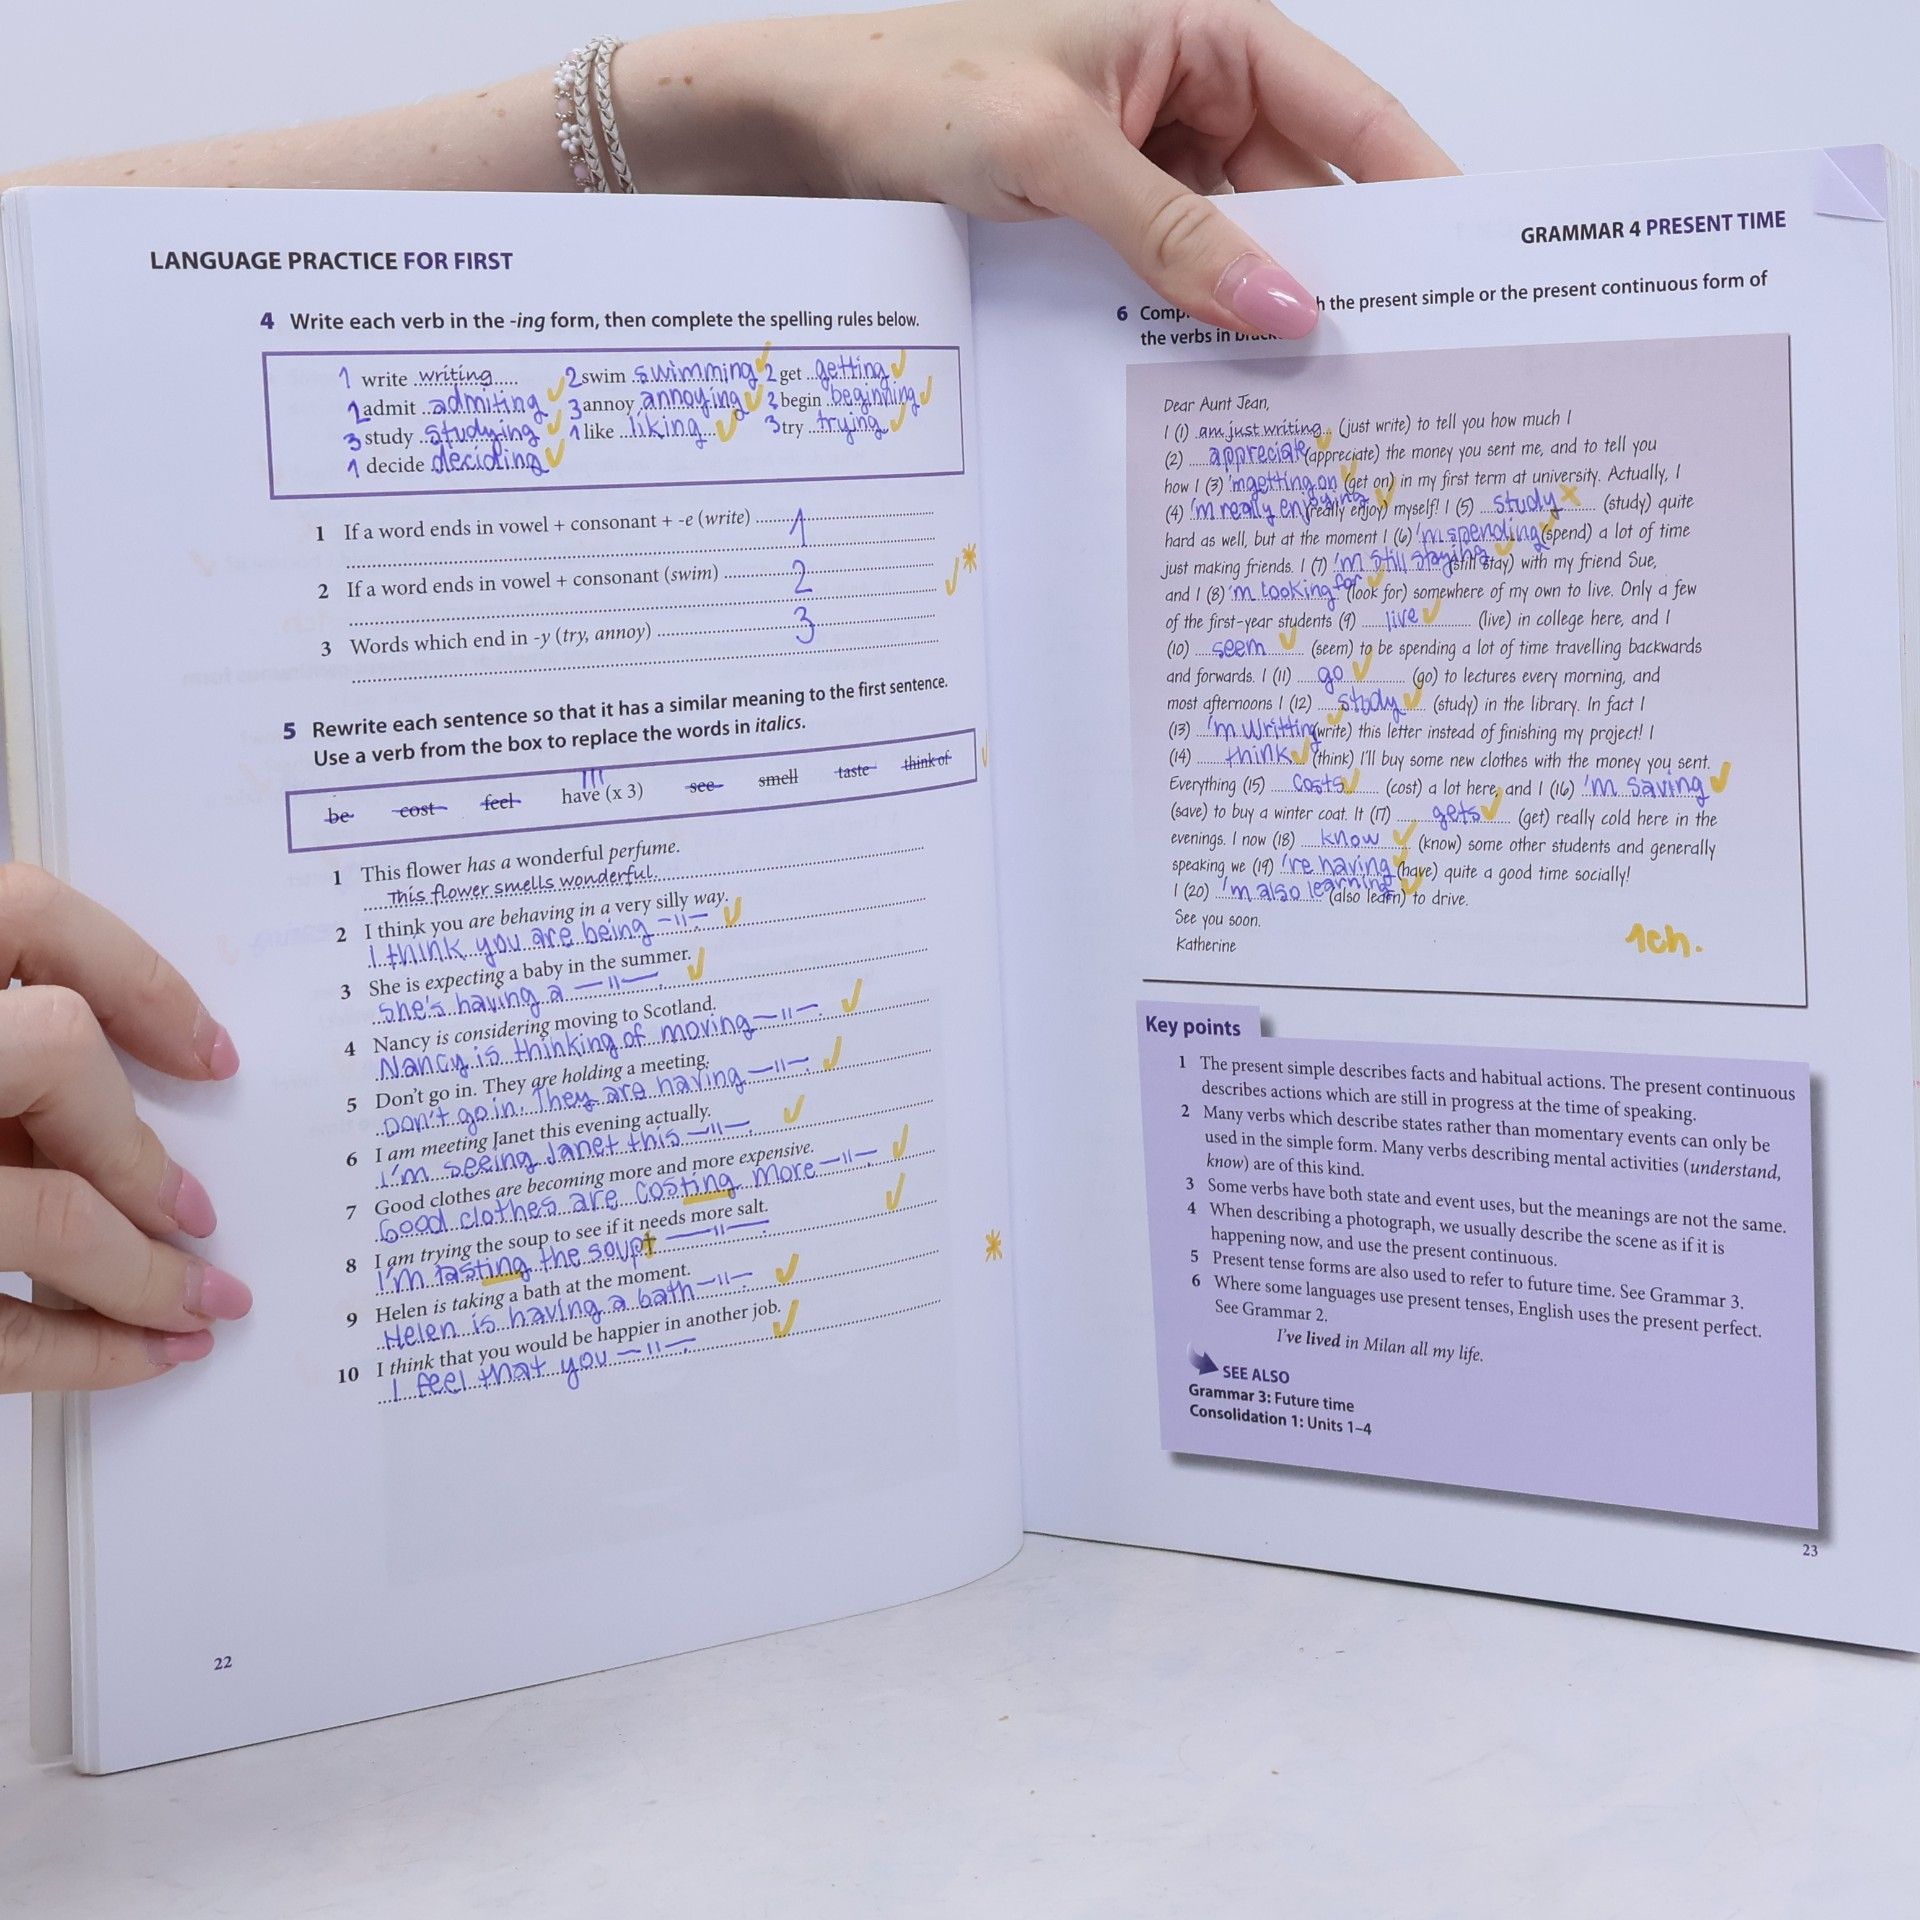 LANGUAGE PRACTICE FOR FIRST
4 Write each verb in the -ing form, then complete the spelling rules below.
1 write writing 2 swim swimming 2 get getting
2 admit admiting 3 annoy annoying 2 begin beginning
3 study studying 1 like liking 3 try trying
1 decide deciding
1 If a word ends in vowel + consonant + -e (write) 1
2 If a word ends in vowel + consonant (swim) 2
3 Words which end in -y (try, annoy) 3
5 Rewrite each sentence so that it has a similar meaning to the first sentence.
Use a verb from the box to replace the words in italics.
be cost feel have (x 3) see smell taste think of
1 This flower has a wonderful perfume.
This flower smells wonderful.
2 I think you are behaving in a very silly way.
I think you are being -11-
3 She is expecting a baby in the summer.
She's having a -11-.
4 Nancy is considering moving to Scotland.
Nancy is thinking of moving -11-.
5 Don't go in. They are holding a meeting.
Don't go in. They are having -11-.
6 I am meeting Janet this evening actually.
I'm seeing Janet this -11-.
7 Good clothes are becoming more and more expensive.
Good clothes are costing more -11-.
8 I am trying the soup to see if it needs more salt.
I'm tasting the soup -11-.
9 Helen is taking a bath at the moment.
Helen is having a bath -11-.
10 I think that you would be happier in another job.
I feel that you -11-.
22
GRAMMAR 4 PRESENT TIME
6 Comp h the present simple or the present continuous form of
the verbs in
Dear Aunt Jean,
I (1) am just writing (just write) to tell you how much I
(2) appreciate (appreciate) the money you sent me, and to tell you
how I (3) 'm getting on (get on) in my first term at university. Actually, I
(4) 'm really enjoying (really enjoy) myself! I (5) study (study) quite
hard as well, but at the moment I (6) 'm spending (spend) a lot of time
just making friends. I (7) 'm still staying (still stay) with my friend Sue,
and I (8) 'm looking for (look for) somewhere of my own to live. Only a few
of the first-year students (9) live (live) in college here, and I
(10) seem (seem) to be spending a lot of time travelling backwards
and forwards. I (11) go (go) to lectures every morning, and
most afternoons I (12) study (study) in the library. In fact I
(13) 'm writting (write) this letter instead of finishing my project! I
(14) think (think) I'll buy some new clothes with the money you sent.
Everything (15) costs (cost) a lot here, and I (16) 'm saving
(save) to buy a winter coat. It (17) gets (get) really cold here in the
evenings. I now (18) know (know) some other students and generally
speaking we (19) 're having (have) quite a good time socially!
I (20) 'm also learning (also learn) to drive.
See you soon.
Katherine
1ch.
Key points
1 The present simple describes facts and habitual actions. The present continuous
describes actions which are still in progress at the time of speaking.
2 Many verbs which describe states rather than momentary events can only be
used in the simple form. Many verbs describing mental activities (understand,
know) are of this kind.
3 Some verbs have both state and event uses, but the meanings are not the same.
4 When describing a photograph, we usually describe the scene as if it is
happening now, and use the present continuous.
5 Present tense forms are also used to refer to future time. See Grammar 3.
6 Where some languages use present tenses, English uses the present perfect.
See Grammar 2.
I've lived in Milan all my life.
SEE ALSO
Grammar 3: Future time
Consolidation 1: Units 1–4
23